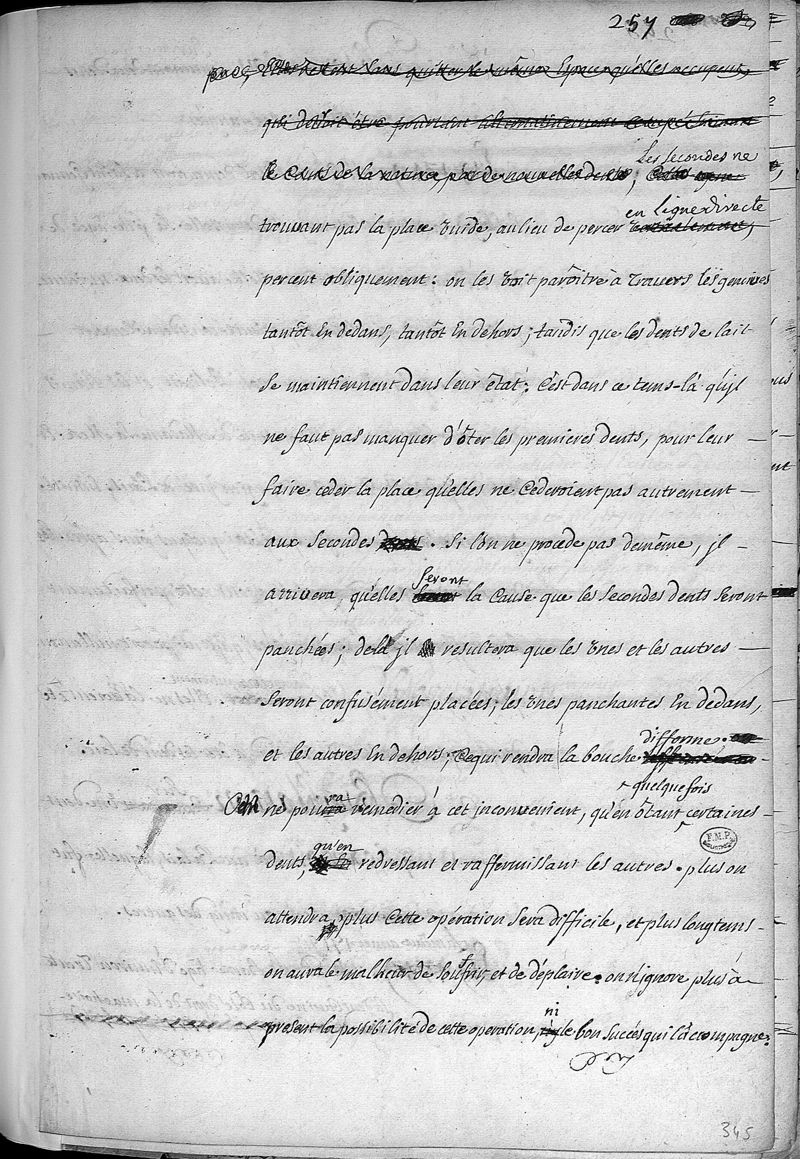 257
qui doivent être pourtant alternativement occupé suivant
le Cours de la nature, par de nouvelles dents; Les secondes ne
trouvant pas la place vuide, aulieu de percer en Ligne directe
percent obliquement: on les voit parôitre à travers les gencives
tantôt En dedans, tantôt En dehors; tandis que les dents de lait
se maintiennent dans leur êtat: C'est dans ce tems-là qu'jl
ne faut pas manquer d'ôter les premieres dents, pour leur
faire ceder la place qu'elles ne Cederoient pas autrement
aux secondes. Si l'on ne procede pas demême, jl
arrivera, qu'elles seront la Cause que les secondes dents seront
panchées; delà jl resultera que les Unes et les autres
seront confusément placées; les Unes panchantes En dedans,
et les autres En dehors; Cequi rendra la bouche difforme.
On ne pourra remedier à cet jnconvenient, qu'en ôtant quelquefois certaines
dents, qu'en redressant et raffermissant les autres. plus on
attendra, plus Cette opération sera difficile, et plus longtems
on aura le malheur de souffrir, et de déplaire. on n'ignore plus à
present la possibilité de cette operation, ni le bon succès qui l'accompagne.
B.F.M.P.
345